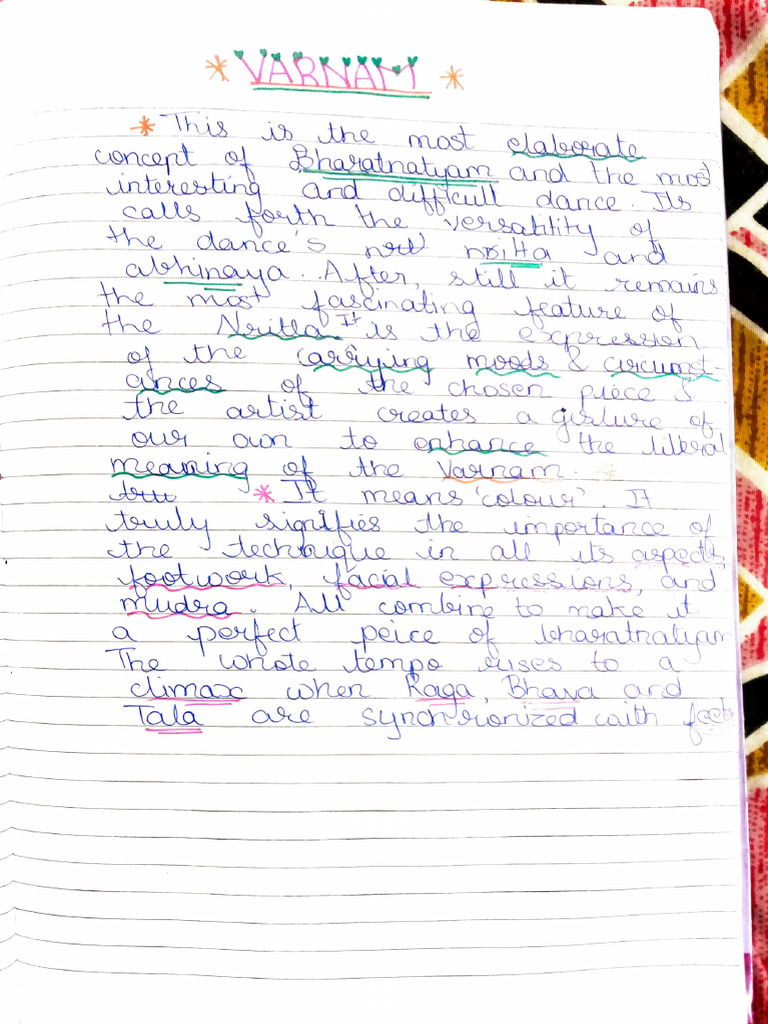 VARNAM
* This is the most elaborate
concept of Bharatnatyam and the most
interesting and difficult dance. Its
calls forth the versatility of
the dance's nritta and
abhinaya. After, still it remains
the most fascinating feature of
the Nritta It is the expression
of the carrying moods & circumst-
ances of the chosen piece &
the artist creates a gesture of
our own to enhance the literal
meaning of the Varnam.
* It means 'colour'. It
truly signifies the importance of
the technique in all its aspects,
footwork, facial expressions, and
mudra. All combine to make it
a perfect peice of bharatnatyam
The whole tempo rises to a
climax when Raga, Bhava and
Tala are synchronized with feet